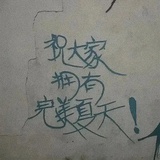 祝大家
拥有
完美夏天!